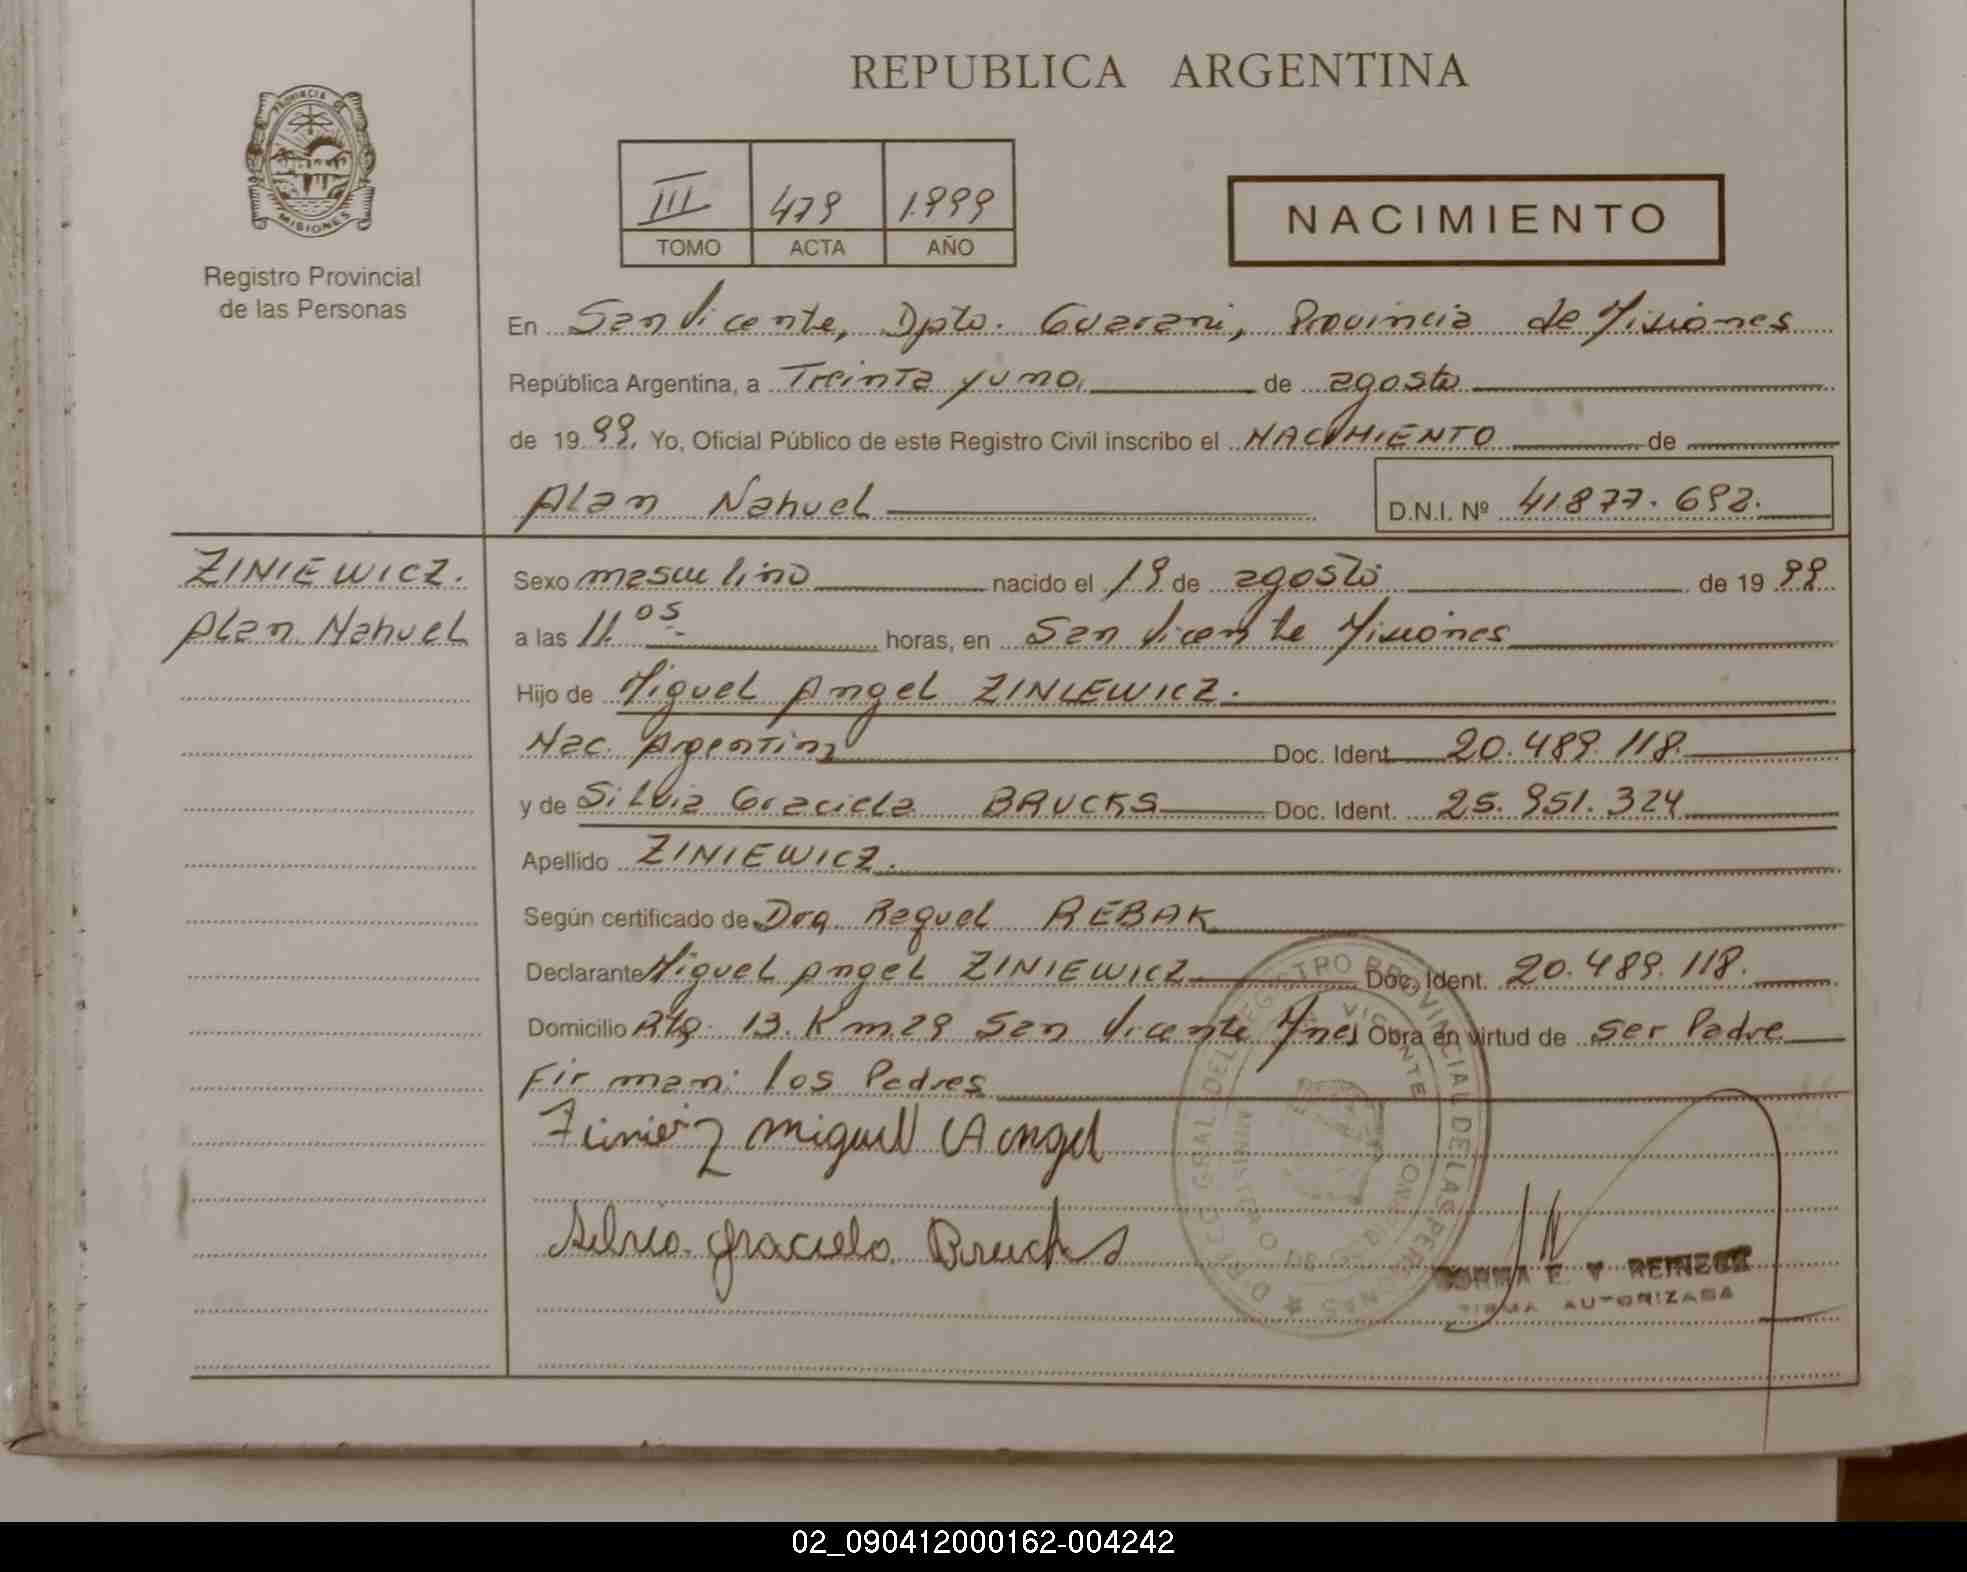 REPUBLICA ARGENTINA
PROVINCIA DE
MISIONES
Registro Provincial
de las Personas
III 479 1.999
TOMO ACTA AÑO
NACIMIENTO
En San Vicente, Dpto. Guarani, Provincia de Misiones
República Argentina, a Treinta y uno, de agosto
de 1999, Yo, Oficial Público de este Registro Civil inscribo el NACIMIENTO de
Alan Nahuel D.N.I. Nº 41.877.692.
ZINIEWICZ.
Alan Nahuel
Sexo masculino nacido el 19 de agosto de 1999
a las 11.05 horas, en San Vicente Misiones
Hijo de Miguel Angel ZINIEWICZ.
Nac. Argentina Doc. Ident. 20.489.118.
y de Silvia Graciela BRUCKS Doc. Ident. 25.951.324
Apellido ZINIEWICZ.
Según certificado de Dra. Raquel REBAK
Declarante Miguel Angel ZINIEWICZ Doc. Ident. 20.489.118.
Domicilio Rta. 13. Km 29 San Vicente Mnes Obra en virtud de ser Padre
Firman: los Padres
Miguel Angel
Silvia Graciela Brucks
DIRECC. GRAL. DEL REGISTRO PROVINCIAL DE LAS PERSONAS
VICENTE
MISIONES
NORMA E. V. REINECK
FIRMA AUTORIZADA
02_090412000162-004242